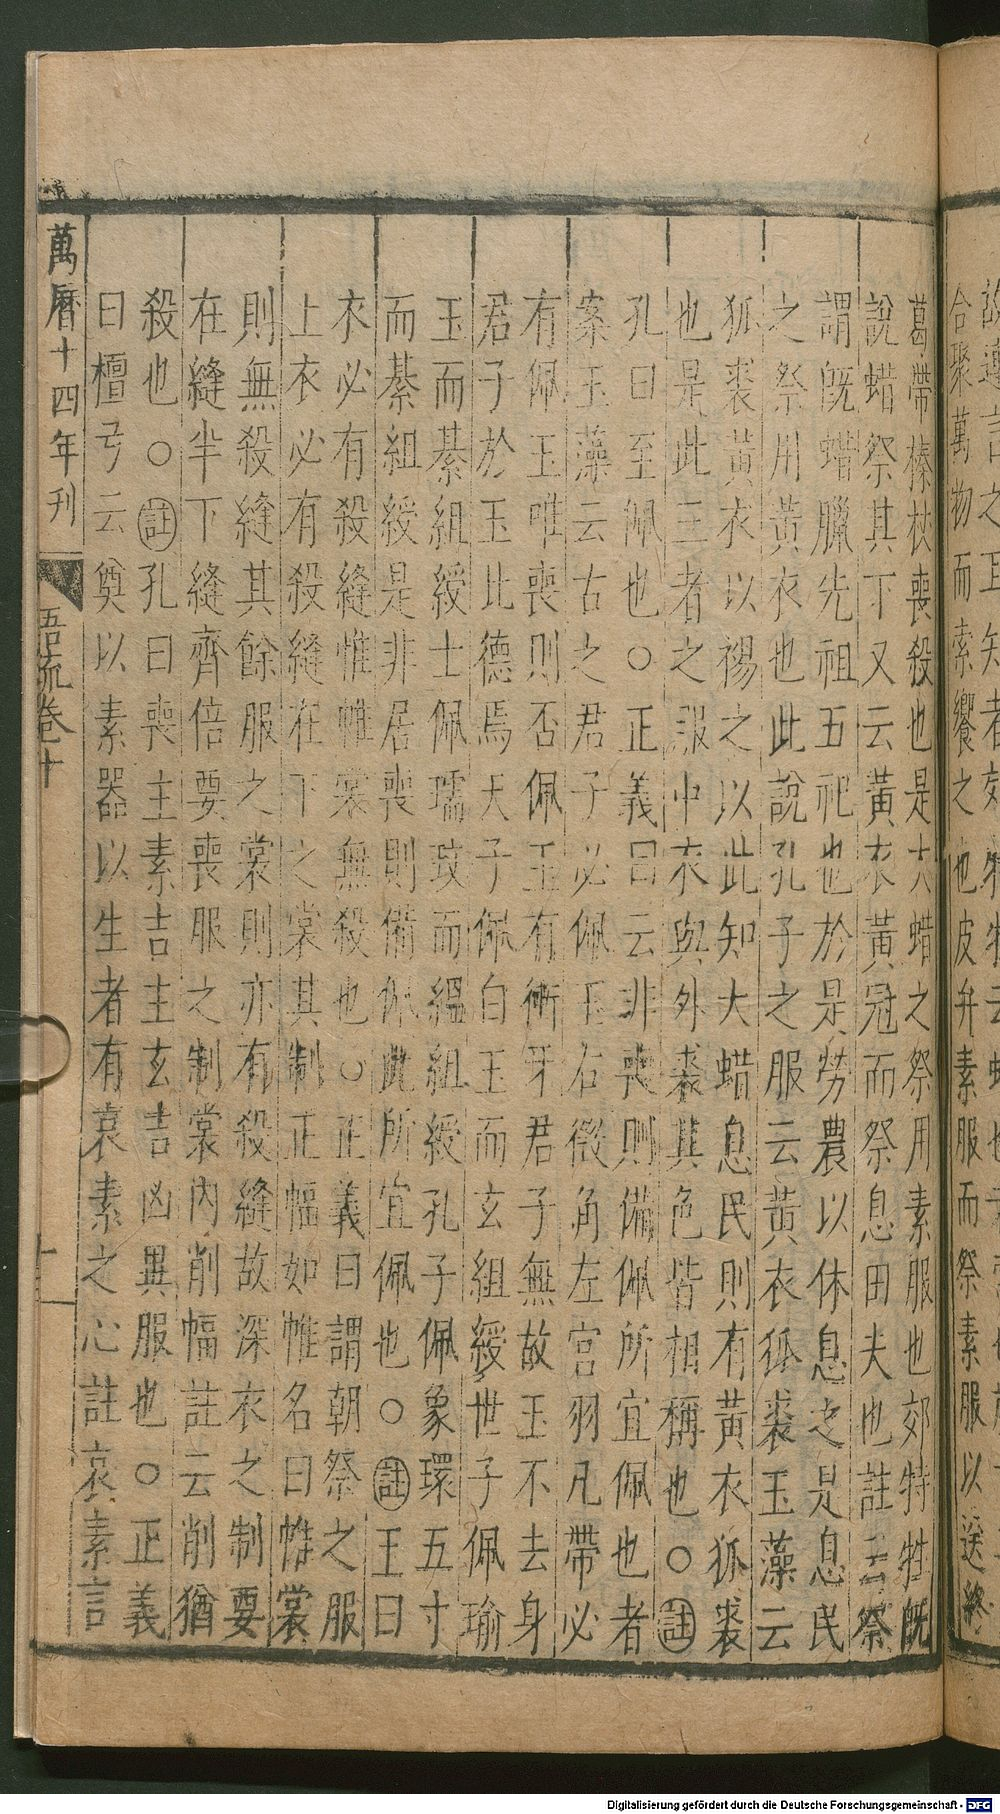 合聚萬物而索饗之也皮弁素服而祭素服以送終
葛帶榛杖喪殺也是大蜡之祭用素服也郊特牲既
說蜡祭其下又云黃衣黃冠而祭息田夫也註云祭
謂既蜡臘先祖五祀也於是勞農以休息之是息民
之祭用黃衣也此說孔子之服云黃衣狐裘玉藻云
狐裘黃衣以裼之以此知大蜡息民則有黃衣狐裘
也是此三者之服中衣與外裘其色皆相稱也○註
孔曰至佩也○正義曰云非喪則備佩所宜佩也者
案玉藻云古之君子必佩玉右徵角左宮羽凡帶必
有佩玉唯喪則否佩玉有衝牙君子無故玉不去身
君子於玉比德焉天子佩白玉而玄組綬世子佩瑜
玉而綦組綬士佩瓀玟而縕組綬孔子佩象環五寸
而綦組綬是非居喪則備佩此所宜佩也○註王曰
衣必有殺縫惟帷裳無殺也○正義曰謂朝祭之服
上衣必有殺縫在下之裳其制正幅如帷名曰帷裳
則無殺縫其餘服之裳則亦有殺縫故深衣之制要
在縫半下縫齊倍要喪服之制裳內削幅註云削猶
殺也○註孔曰喪主素吉主玄吉凶異服也○正義
曰檀弓云奠以素器以生者有哀素之心註哀素言
萬曆十四年刊 語疏卷十
Digitalisierung gefördert durch die Deutsche Forschungsgemeinschaft - DFG